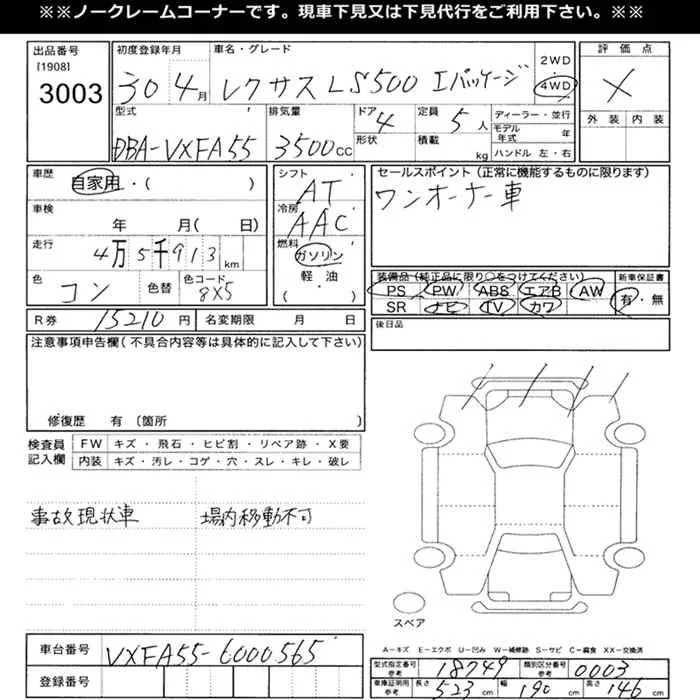 ※※ノークレームコーナーです。現車下見又は下見代行をご利用下さい。※※
出品番号 初度登録年月 車名・グレード 2WD 評価点
[1908]
3003 30 4月 レクサス LS500 Iパッケージ 4WD X
外装 内装
型式 排気量 ドア 4 定員 5人 ディーラー・並行
形状 積載 kg モデル年式 年
DBA-VXFA55 3500cc ハンドル 左・右
車歴 自家用・( ) シフト AT セールスポイント(正常に機能するものに限ります)
ワンオーナー車
車検 年 月( 日) 冷房 AAC
走行 4万5千913km 燃料 ガソリン
軽・油
・( )
色 コン 色替 色コード 8X5
装備品(純正品に限り○をつけてください) 新車保証書
PS PW ABS エアB AW 有・無
SR ナビ TV カワ
R券 15210円 名変期限 月 日 後日品
注意事項申告欄(不具合内容等は具体的に記入して下さい)
修復歴 有 〔箇所 )
検査員記入欄 FW キズ・飛石・ヒビ割・リペア跡・X要
内装 キズ・汚レ・コゲ・穴・スレ・キレ・破レ
事故現状車 場内移動不可
スペア
A-キズ E-エクボ U-凹み W-補修跡 S-サビ C-腐食 XX-交換済
車台番号 VXFA55-6000565
登録番号
型式指定番号 参考 18749 類別区分番号 参考 0003
車庫証明用 参考 長さ 523cm 幅 190cm 高さ 146cm